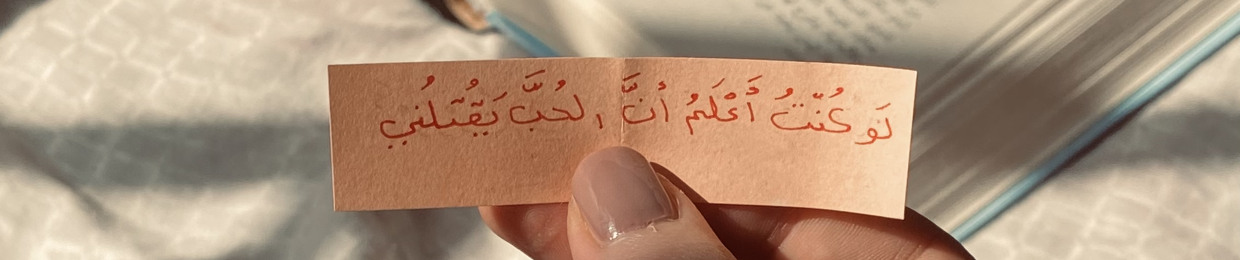 لَو كُنّتُ أَعْلَمُ أنَّ الحُبَّ يَقّتُلُني